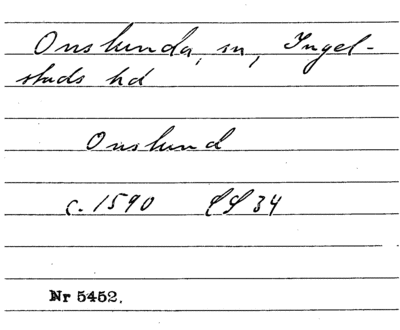 Onslunda, sn, Ingel-
stads hd
Onslund
c. 1590 LL 34
Nr 5452.